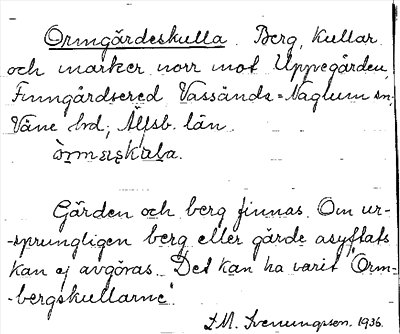 Ormgärdeskulla. Berg, kullar
och marker norr mot Uppegården,
Finngårdsered Vassända-Naglum sn,
Väne hd, Älfsb. län.

Gärden och berg finnas. Om ur-
-sprungligen berg eller gärde asyftats
kan ej avgöras. Det kan ha varit "Orm-
-bergskullarne".
J. M. Svenungson. 1936.